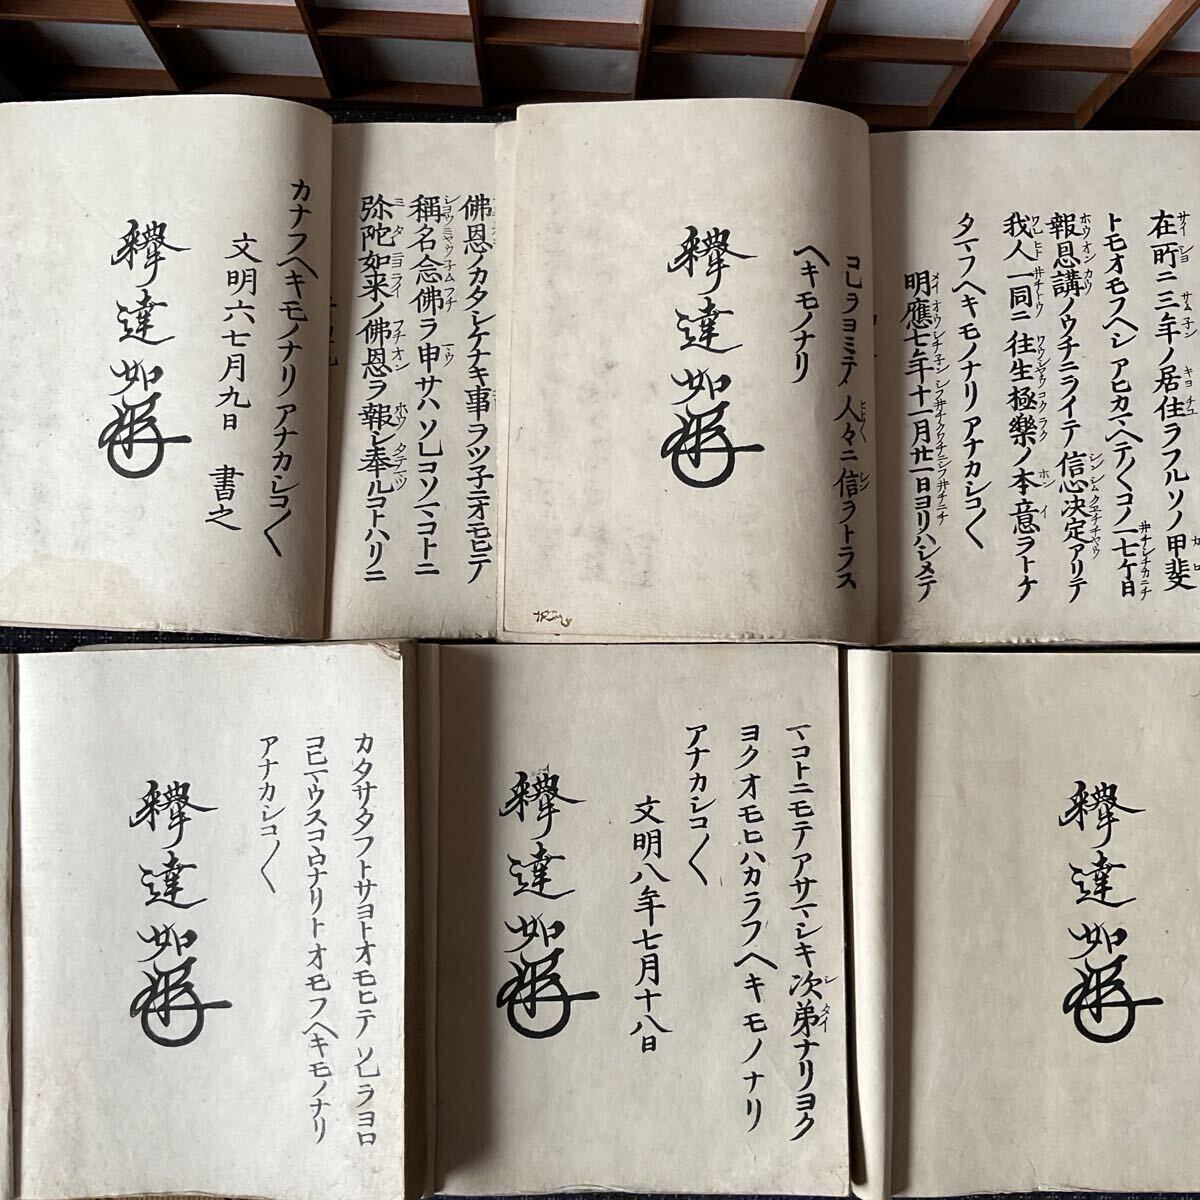 在所ニ三年ノ居住ヲフルソノ甲斐
トモオモフヘシアヒカマヘテ〳〵コノ一七ケ日
報恩講ノウチニヲイテ信心決定アリテ
我人一同ニ往生極樂ノ本意ヲトケ
タマフヘキモノナリアナカシコ〳〵
明應七年十一月廿一日ヨリハシメテ
コレヲヨミテ人々ニ信ヲトラス
ヘキモノナリ
釋達如
佛恩ノカタシケナキ事ヲツ子ニオモヒテ
稱名念佛ヲ申サハソレコソマコトニ
弥陀如来ノ佛恩ヲ報シ奉ルコトハリニ
カナフヘキモノナリアナカシコ〳〵
文明六七月九日 書之
釋達如
釋達如
マコトニモテアサマシキ次弟ナリヨク
ヨクオモヒハカラフヘキモノナリ
アナカシコ〳〵
文明八年七月十八日
釋達如
カタサタフトサヨトオモヒテソレヲヨロ
コヒマウスコヽロナリトオモフヘキモノナリ
アナカシコ〳〵
釋達如